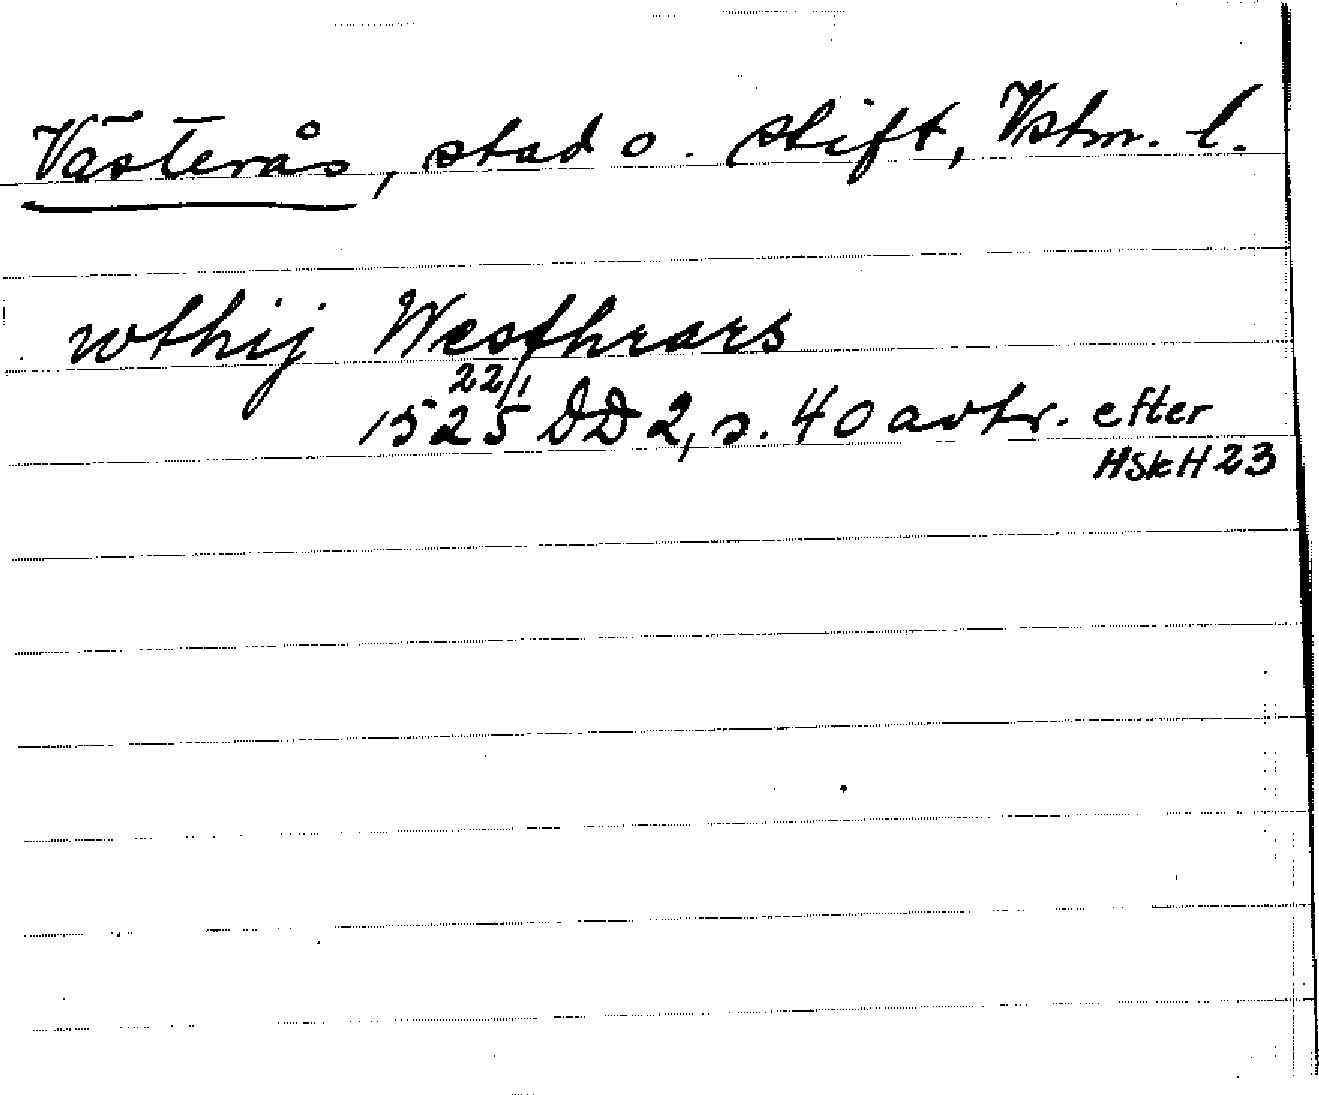 Västerås, stad o. stift, Vstm. l.
wthij Westhrars
22/1
1525 DD 2, s. 40 avtr. efter
HSkH 23